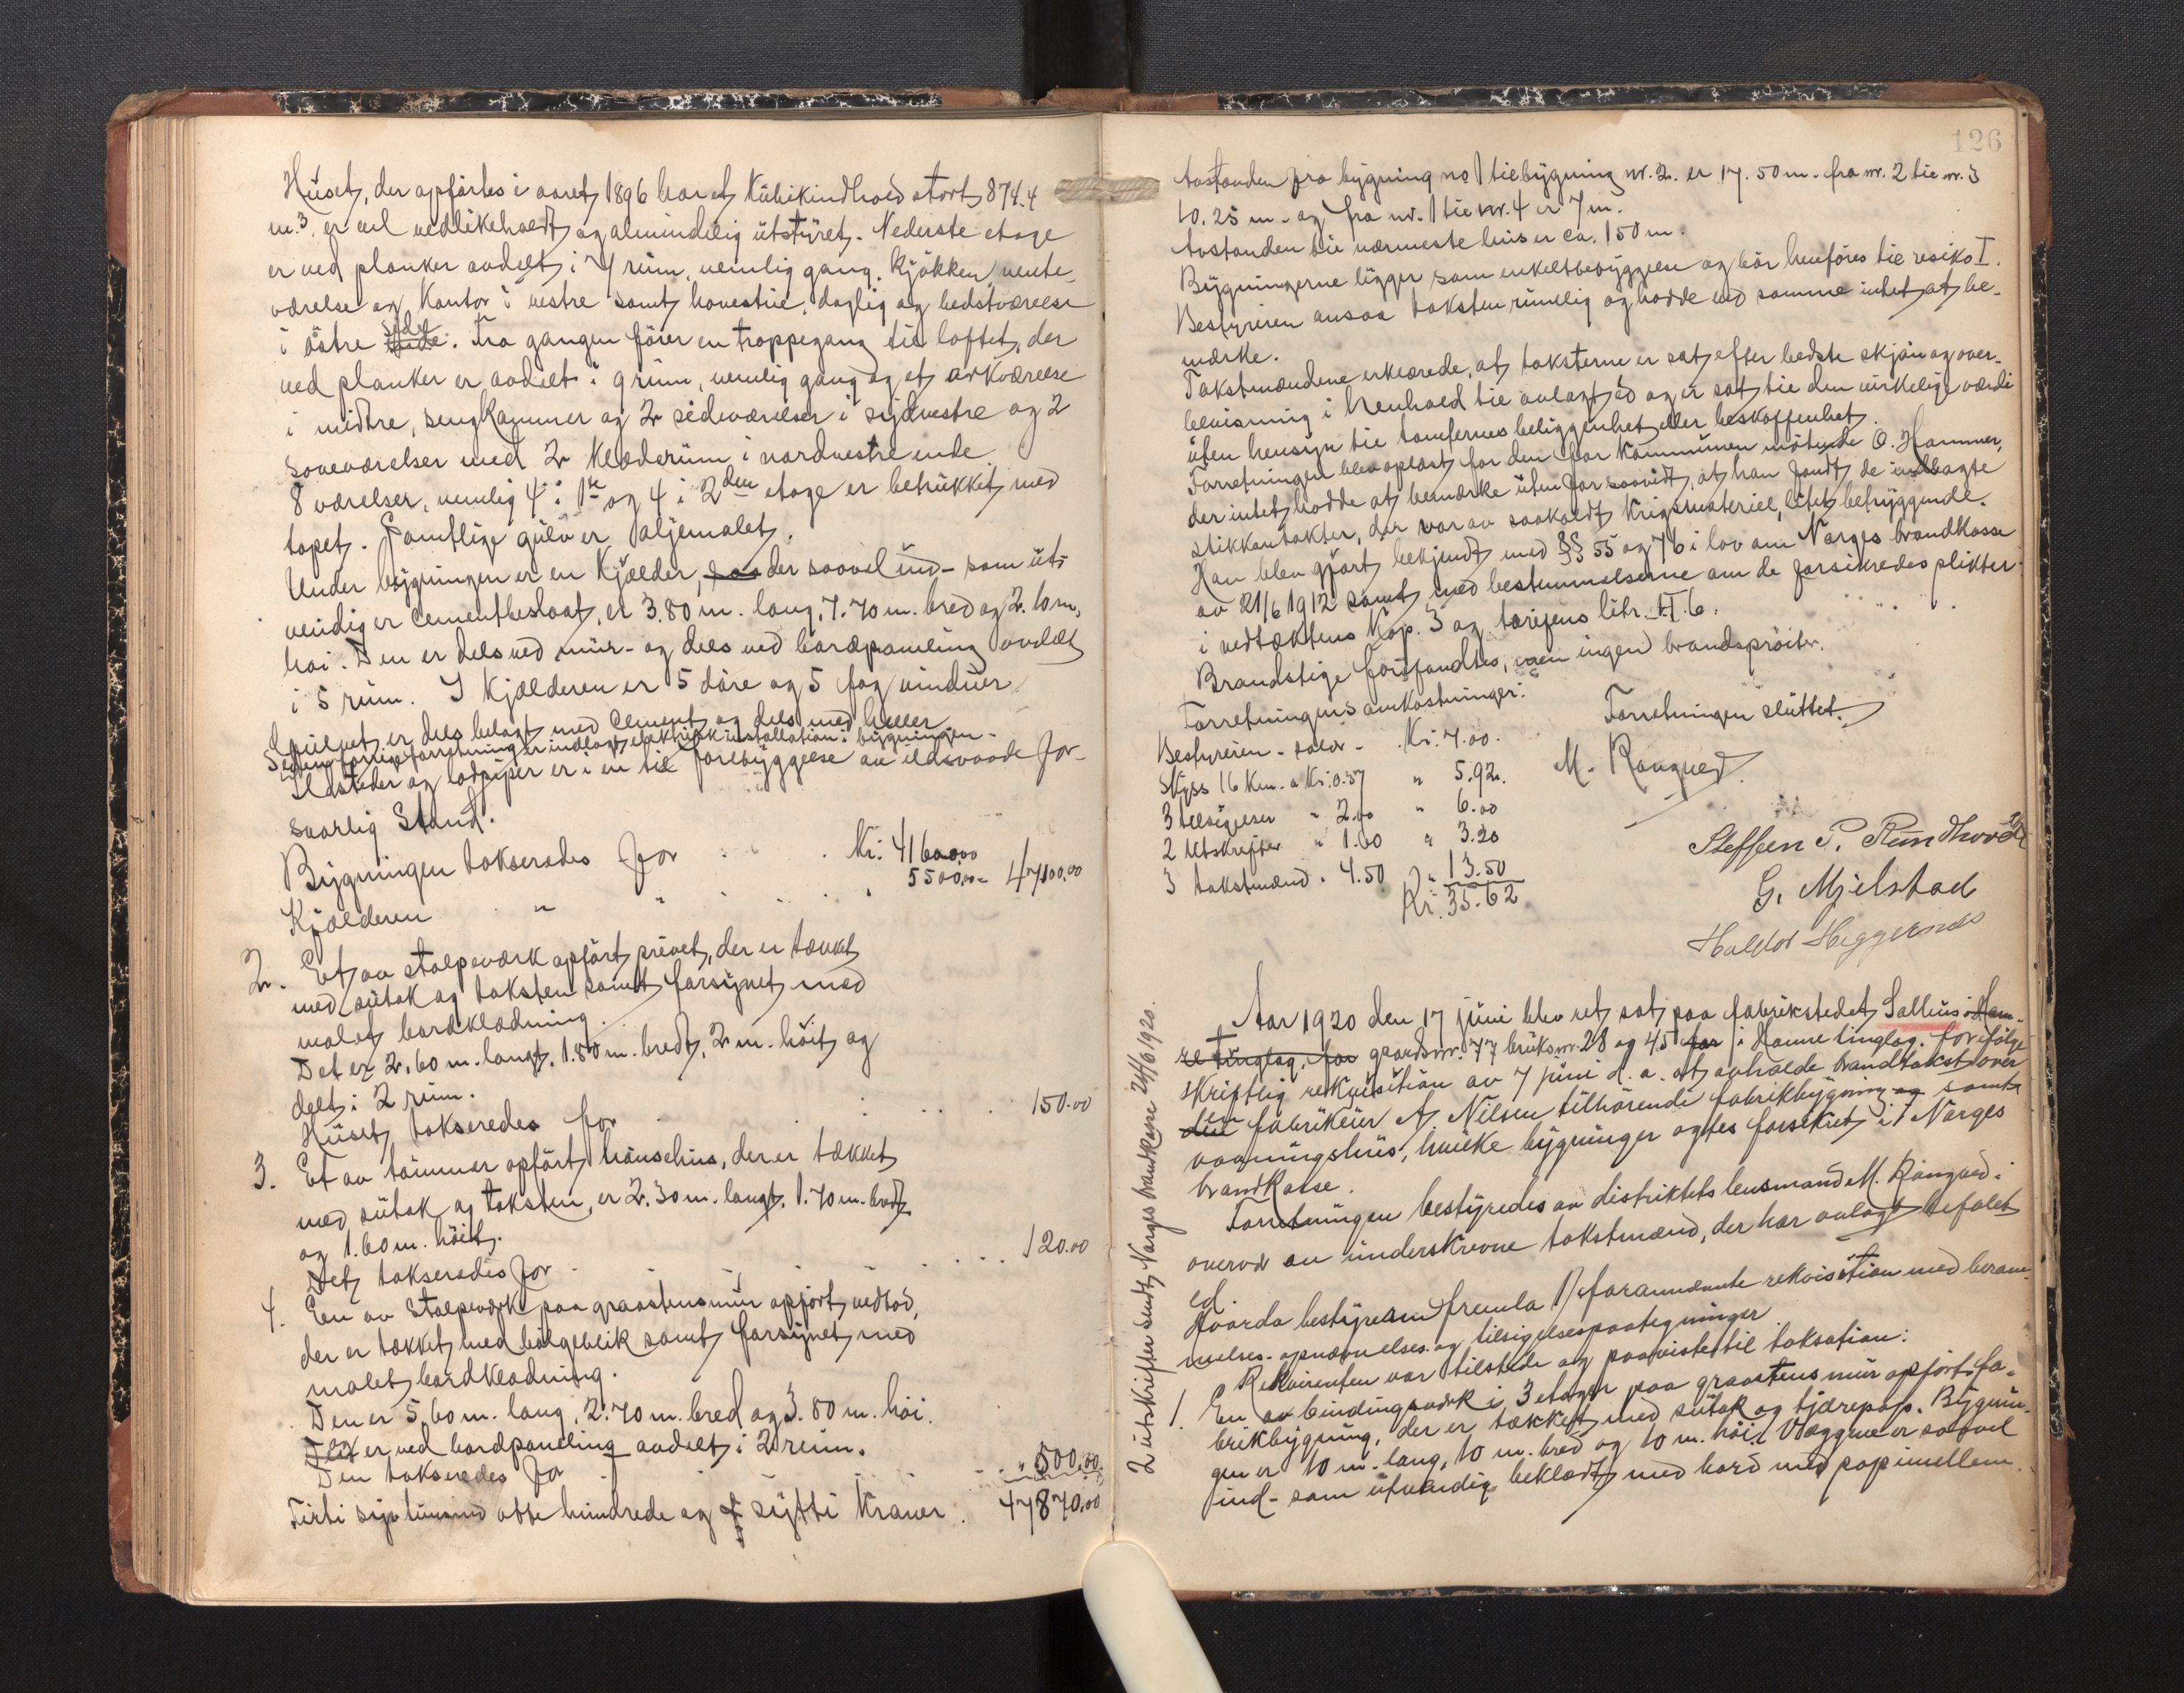 Huset, der opførtes i aaret 1896 har et Kubikindhold stort 874.4
m.³, er vel vedlikeholdt og almindelig utstyret. Nederste etage
er ved planker avdelt i 7 rum, nemlig gang, kjøkken, vente-
værelse og Kontor i vestre samt konestue, daglig og bedstværelse
i østre side. Fra gangen fører en trappegang til loftet, der
ved planker er avdelt i 9 rum, nemlig gang og et arkværelse
i midtre, sengkammer og 2 sideværelser i sydvestre og 2
soveværelser med 2 klæderum i nordvestre ende
8 værelser, nemlig 4 i 1ste og 4 i 2den etage er betrukket med
tapet. Samtlige gulv er oljemalet.
Under bygningen er en Kjælder, der saavel ind- som ut-
vendig er Cementbeslaat, er 3.80 m. lang, 7.70 m. bred og 2.10 m.
høi. Den er dels ved mur- og dels ved bordpaneling avdelt
i 5 rum. I Kjælderen er 5 døre og 5 fag vinduer.
Gulvet er dels belagt med Cement og dels med heller.
Siden forrige forretning er indlagt elektrisk installation i bygningen.
Ildsteder og lodpiper er i en til forebyggelse av ildsvaade for-
svarlig Stand.
Bygningen takseredes for . . . Kr. 41600.00
Kjælderen " " . . . 5500.00 47100.00
2. Et av stolpeværk opført privet, der er tækket
med sutak og taksten samt forsynet med
malet bordklædning.
Det er 2.60 m. langt, 1.80 m. bredt, 2 m. høit og
delt i 2 rum.
Huset takseredes for . . . 150.00
3. Et av tømmer opført hønsehus, der er tækket
med sutak og taksten, er 2.30 m. langt, 1.70 m. bredt
og 1.60 m. høit.
Det takseredes for . . . 120.00
4. En av Stolpeværk paa graastensmur opført vedbod,
der er tækket med bølgeblik samt forsynet med
malet bordklædning.
Den er 5.60 m. lang, 2.70 m. bred og 3.80 m. høi.
Den er ved bordpaneling avdelt i 2 rum.
Den takseredes for . . . " 500.00
Firti syv tusind otte hundrede og sytti Kroner. 47870.00
126
Avstanden fra bygning no 1 til bygning nr. 2. er 17.50 m. fra nr. 2 til nr. 3
10.25 m. og fra nr. 1 til nr. 4 er 7 m.
Avstanden til nærmeste hus er ca. 150 m.
Bygningerne ligger som enkeltbebyggelse og bør henføres til resiko I.
Bestyreren ansaa taksten rimelig og hadde ved samme intet at be-
mærke.
Takstmændene erklærede, at taksterne er sat efter bedste skjøn og over-
bevisning i henhold til avlagt ed og er sat til den virkelige værdi
uten hensyn til tomternes beliggenhet eller beskaffenhet.
Forretningen blev oplæst for den for Kommunen møtende O. Hammer,
der intet hadde at bemærke uten forsaavidt, at han fandt de indlagte
stikkontakter, der var av saakaldt Krigsmateriel, litet betryggende.
Han blev gjort bekjendt med §§ 55 og 76 i lov om Norges brandkasse
av 21/6 1912 samt med bestemmelserne om de forsikredes plikter
i vedtæktens Kap. 3 og tarifens litr. H. 6.
Brandstige forefandtes, men ingen brandsprøite.
Forretningens omkostninger: Forretningen sluttet.
Bestyreren - salær - Kr. 7.00.
Skyss 16 Km. a Kr. 0.37 " 5.92.
3 tilsigelser " 2.00 " 6.00
2 Utskrifter " 1.60 " 3.20
3 takstmænd " 4.50 " 13.50
Kr. 35.62
M. Rongved
Steffen P. Rundhovde
G. Mjelstad
Haldor Heggernes
2 utskrifter sendt Norges brandkasse 24/6 1920.
Aar 1920 den 17 juni blev ret sat paa fabrikstedet Sallhus i Ham-
re tinglag, for gaardsnr. 77 bruksnr. 28 og 45 for i Hamre tinglag. for ifølge
skriftlig rekvisition av 7 juni d. a. at avholde brandtakst over
den fabrikeier A. Nilsen tilhørende fabrikbygning og samt
vaaningshus, hvilke bygninger agtes forsikret i Norges
brandkasse.
Forretningen bestyredes av distriktets lensmand M. Rongved i
overvær av underskrevne takstmænd, der har avlagt befalet
ed.
Hvorda bestyreren fremla 1) forannævnte rekvisition med beram-
melses- opnævnelses- og tilsigelsespaategninger
Rekvirenten var tilstede og paaviste til taksation:
1. En av bindingsverk i 3 etager paa graastensmur opført fa-
brikbygning, der er tækket med sutak og tjærepap. Bygnin-
gen er 10 m. lang, 10 m. bred og 10 m. høi. Væggene er saavel
ind- som utvendig beklædt med bord med pap imellem.